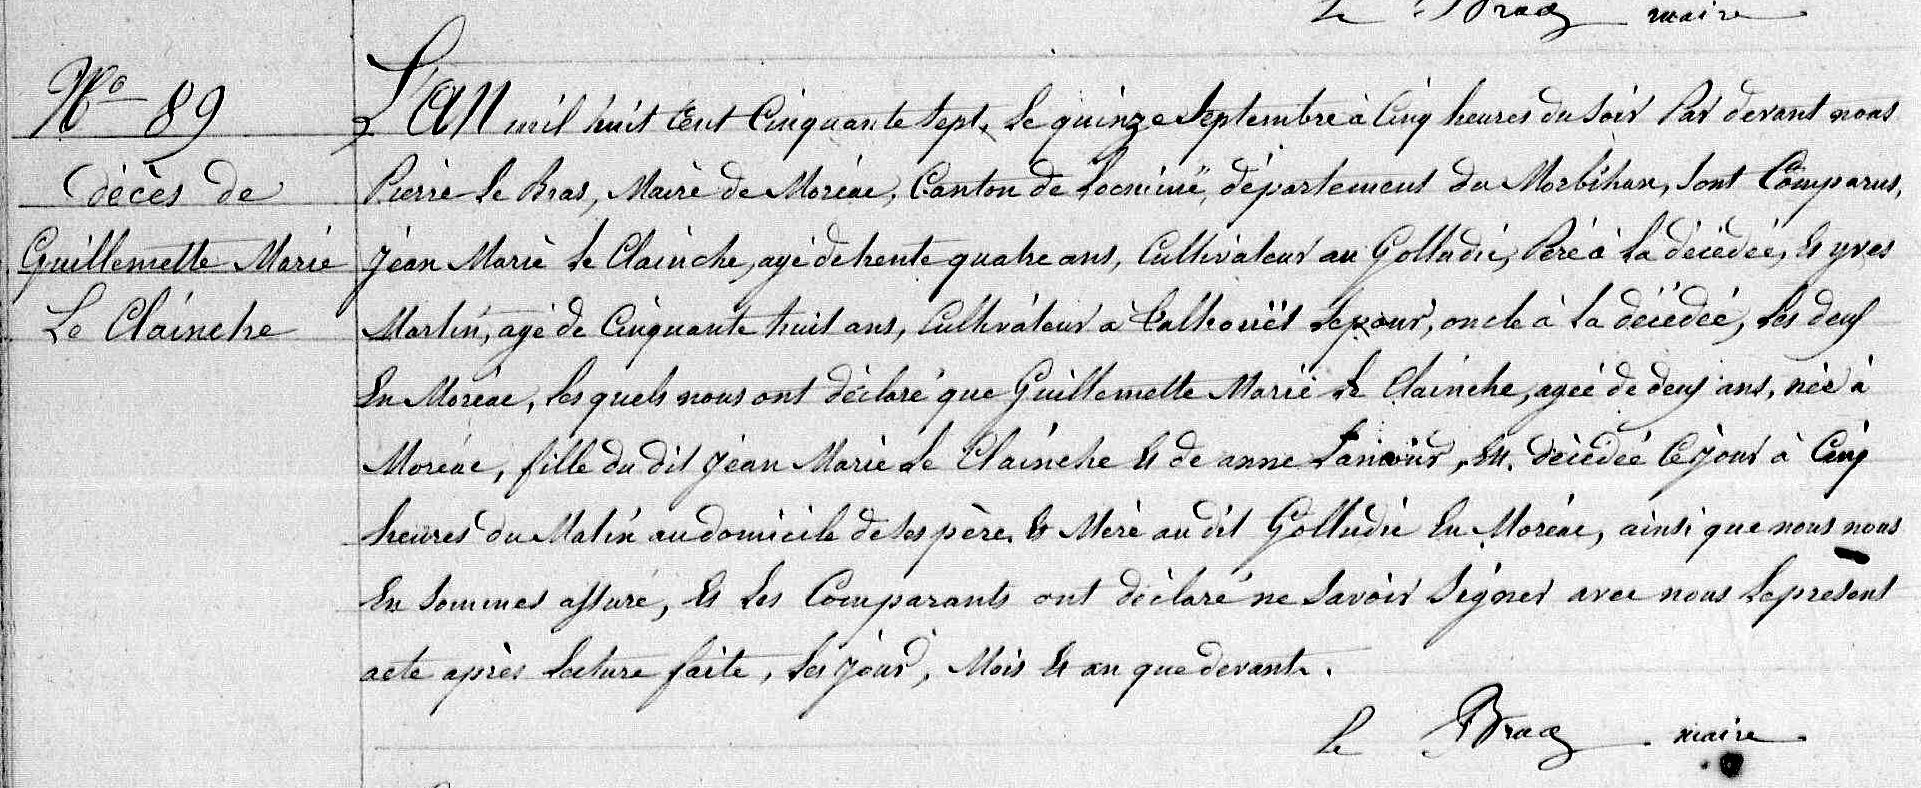 Le Braz maire
No 89
décès de
Guillemette Marie
Le Clainche
L'an mil huit cent cinquante sept, le quinze Septembre à cinq heures du soir Par devant nous
Pierre Le Bras, Maire de Moréac, Canton de Locminé, département du Morbihan, sont comparus,
Jéan Marie Le Clainche, agé de trente quatre ans, Cultivateur au Golludic, Père à la décédée, et yves
Martin, agé de cinquante huit ans, Cultivateur à oncle à la décédée, les deux
En Moréac, lesquels nous ont déclaré que Guillemette Marie Le Clainche, agée de deux ans, née à
Moréac, fille du dit Jéan Marie Le Clainche et de anne est décédée ce jour à cinq
heures du Matin au domicile de ses père et Mère au dit Golludic En Moréac, ainsi que nous nous
En sommes assuré, et les Comparants ont déclaré ne savoir signer avec nous le présent
acte après lecture faite, les jour, Mois et an que devant.
Le Braz maire